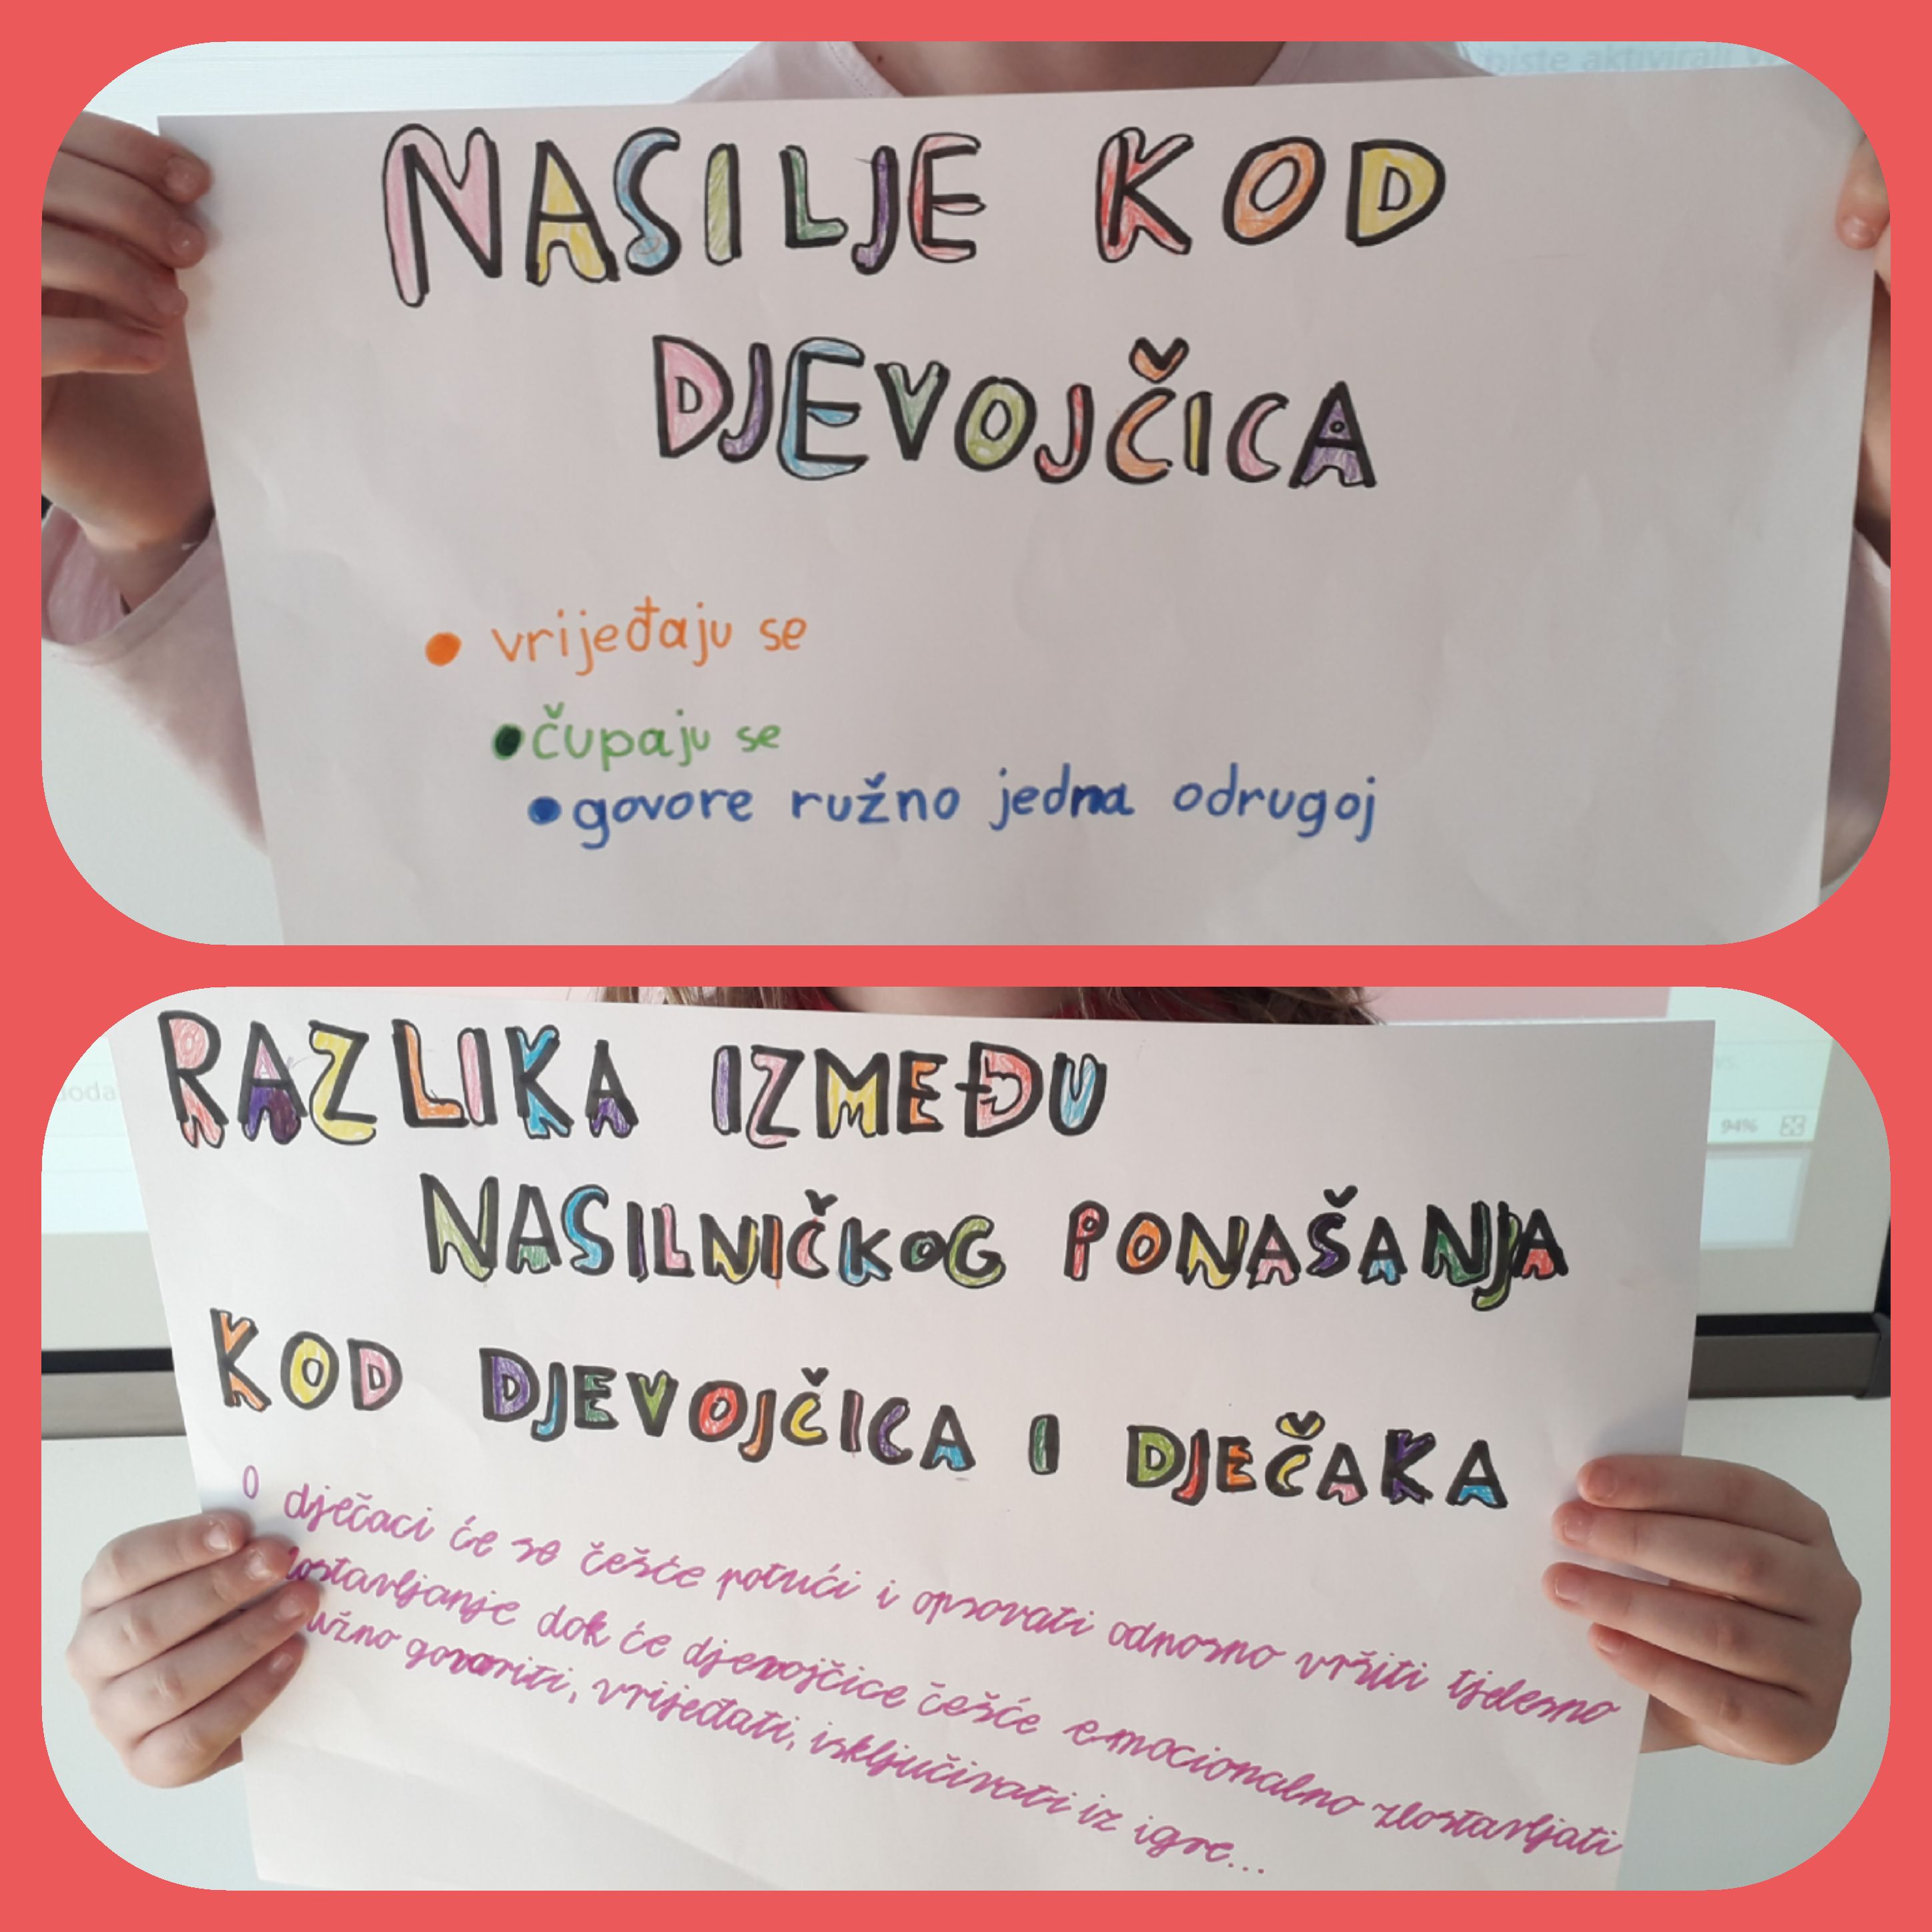 piste aktivirali
NASILJE KOD
DJEVOJČICA
● vrijeđaju se
● čupaju se
● govore ružno jedna odrugoj
RAZLIKA IZMEĐU
NASILNIČKOG PONAŠANJA
KOD DJEVOJČICA I DJEČAKA
94%
0 dječaci će se češće potući i opsovati odnosno vršiti tjelesno
lostavljanje dok će djevojčice češće emocionalno zlostavljati
užno govoriti, vrijeđati, isključivati iz igre...